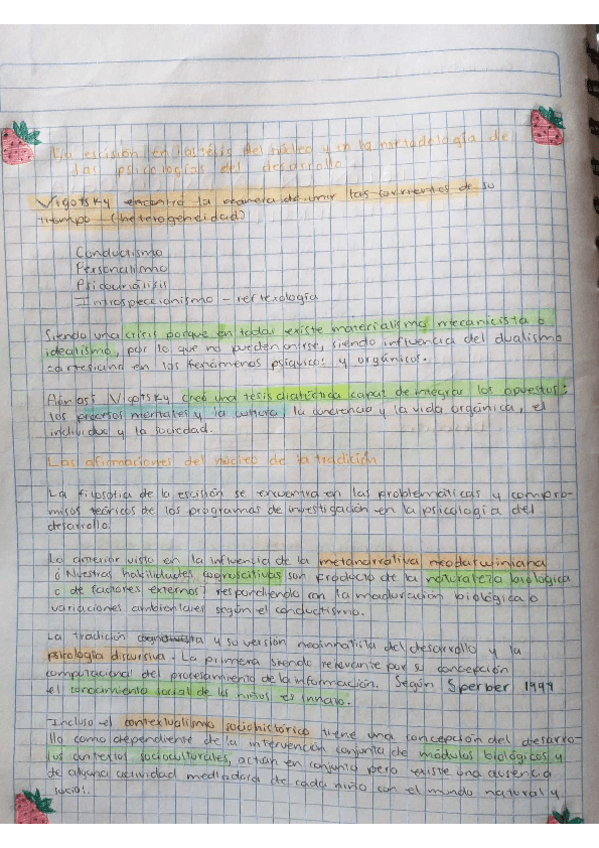 La escisión en las tesis del núcleo y en la metodología de
las psicologías del desarrollo
Vigotsky encontró la manera de unir las corrientes de su
tiempo (heterogeneidad)
Conductismo
Personalismo
Psicoanálisis
Introspeccionismo - reflexología
Siendo una crisis porque en todas existe materialismo mecanicista o
idealismo, por lo que no pueden unirse, siendo influencia del dualismo
cartesiano en los fenómenos psíquicos y orgánicos.
Aún así Vigotsky creó una tesis dialéctica capaz de integrar los opuestos:
los procesos mentales y la cultura, la conciencia y la vida orgánica, el
individuo y la sociedad.
Las afirmaciones del núcleo de la tradición
La filosofía de la escisión se encuentra en las problemáticas y compro-
misos teóricos de los programas de investigación en la psicología del
desarrollo.
Lo anterior visto en la influencia de la metanarrativa neodarwiniana
ó Nuestras habilidades cognoscitivas son producto de la naturaleza biológica
o de factores externos? respondiendo con la maduración biológica o
variaciones ambientales según el conductismo.
La tradición cognitivista y su versión neoinnatista del desarrollo y la
psicología discursiva. La primera siendo relevante por su concepción
computacional del procesamiento de la información. Según Sperber 1994
el conocimiento social de los niños es innato.
Incluso el contextualismo sociohistórico tiene una concepción del desarro-
llo como dependiente de la intervención conjunta de módulos biológicos y
los contextos socioculturales, actúan en conjunto pero existe una ausencia
de alguna actividad mediadora de cada niño con el mundo natural y
social.